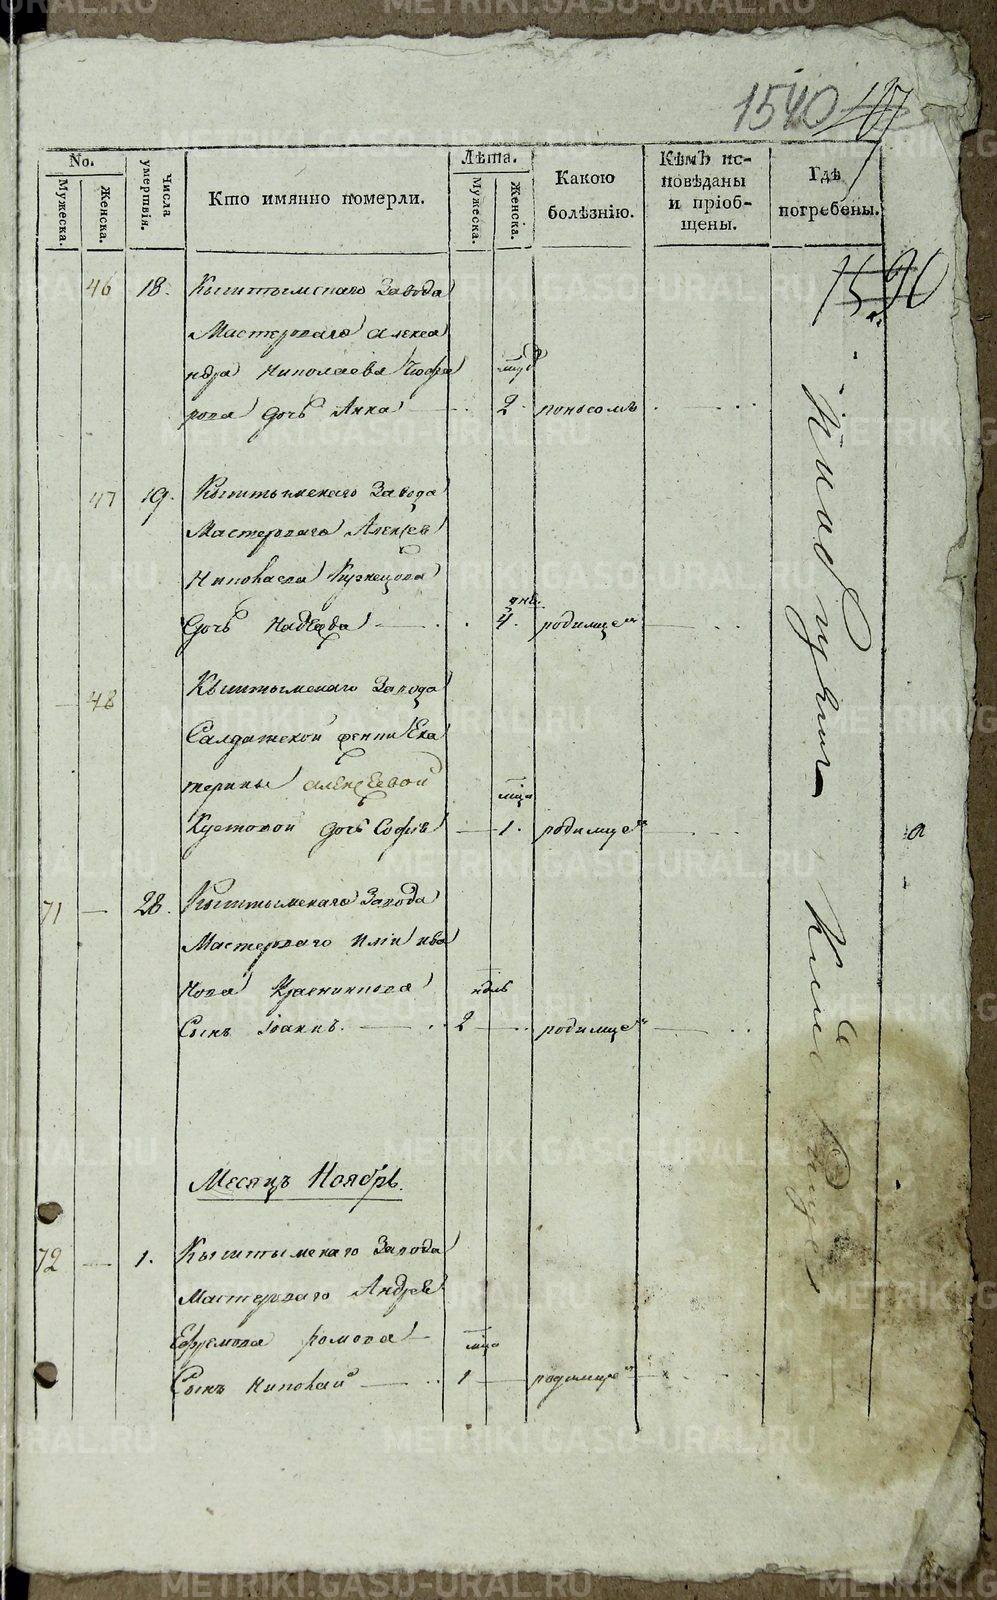 1540
No.
Мужеска.
Женска.
Числа умертвія.
Кто имянно померли.
Лѣта.
Мужеска.
Женскa.
Какою болѣзнію.
Кѣмъ исповѣданы и пріобщены.
Гдѣ погребены.
1590
46 18. Кыштымскаго Завода
Мастероваго Алекса
ндра Николаева
мца
рова дочь Анна 2. поносомъ
47 19. Кыштымскаго Завода
Мастероваго Алексѣя
Николаева Кузнецова
днѣ.
дочь Надежда 4. родимце
48 Кыштымскаго Завода
Салдатской женки Ека
терины Алексѣевой
мца
Кустовой дочь Софія 1. родимце
71 28. Кыштымскаго Завода
Мастероваго Иліи Ива
нова Красникова
ндль
Сынъ Іоаннъ. 2 родимце
Месяцъ Ноябрь.
72 1. Кыштымскаго Завода
Мастероваго Андрея
Ефремова Ромова
мца
Сынъ Николай 1 родимце
METRIKI.GASO-URAL.RU